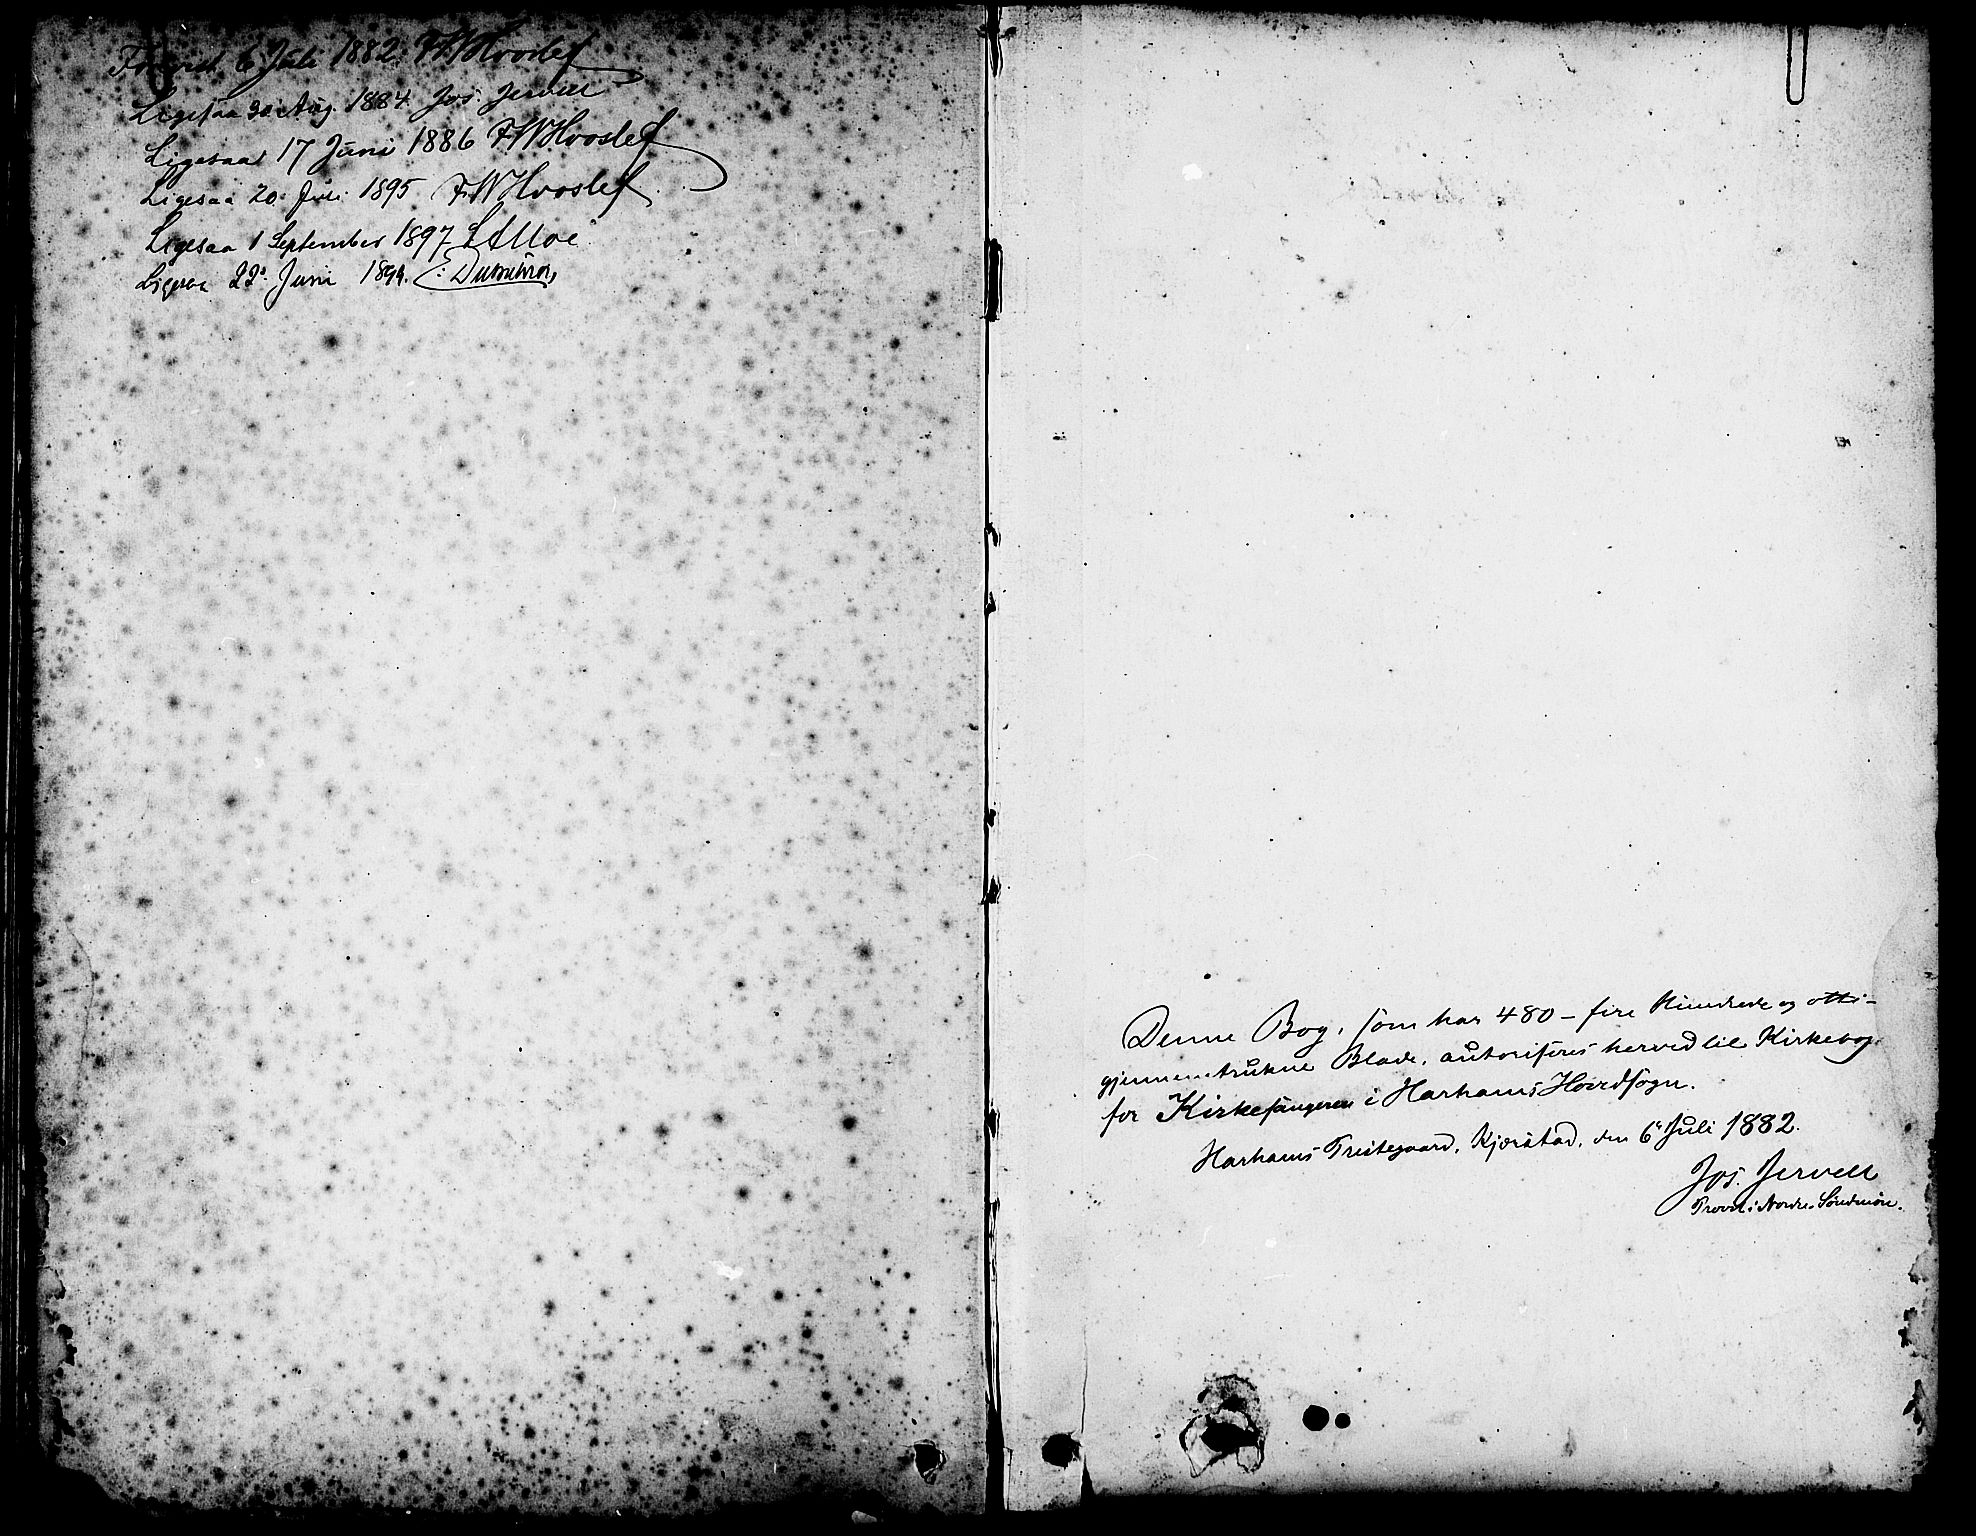 Forevist 6 Juli 1882. FWHvoslef
Ligesaa 30 Aug. 1884. Jos. Jervell
Ligesaa 17 Juni 1886 FWHvoslef
Ligesaa 20. Juli 1895 FWHvoslef
Ligesaa 1 September 1897
Ligesaa 22. Juni 1899.
Denne Bog, som har 480 – fire Hundrede og otti–
gjennemtrukne Blade, autoriseres herved til Kirkebog
for Kirkesangeren i Harhams Hovedsogn.
Harhams Prestegaard, Kjerstad, den 6te Juli 1882.
Jos. Jervell
Provst i Nordre Søndmøre.